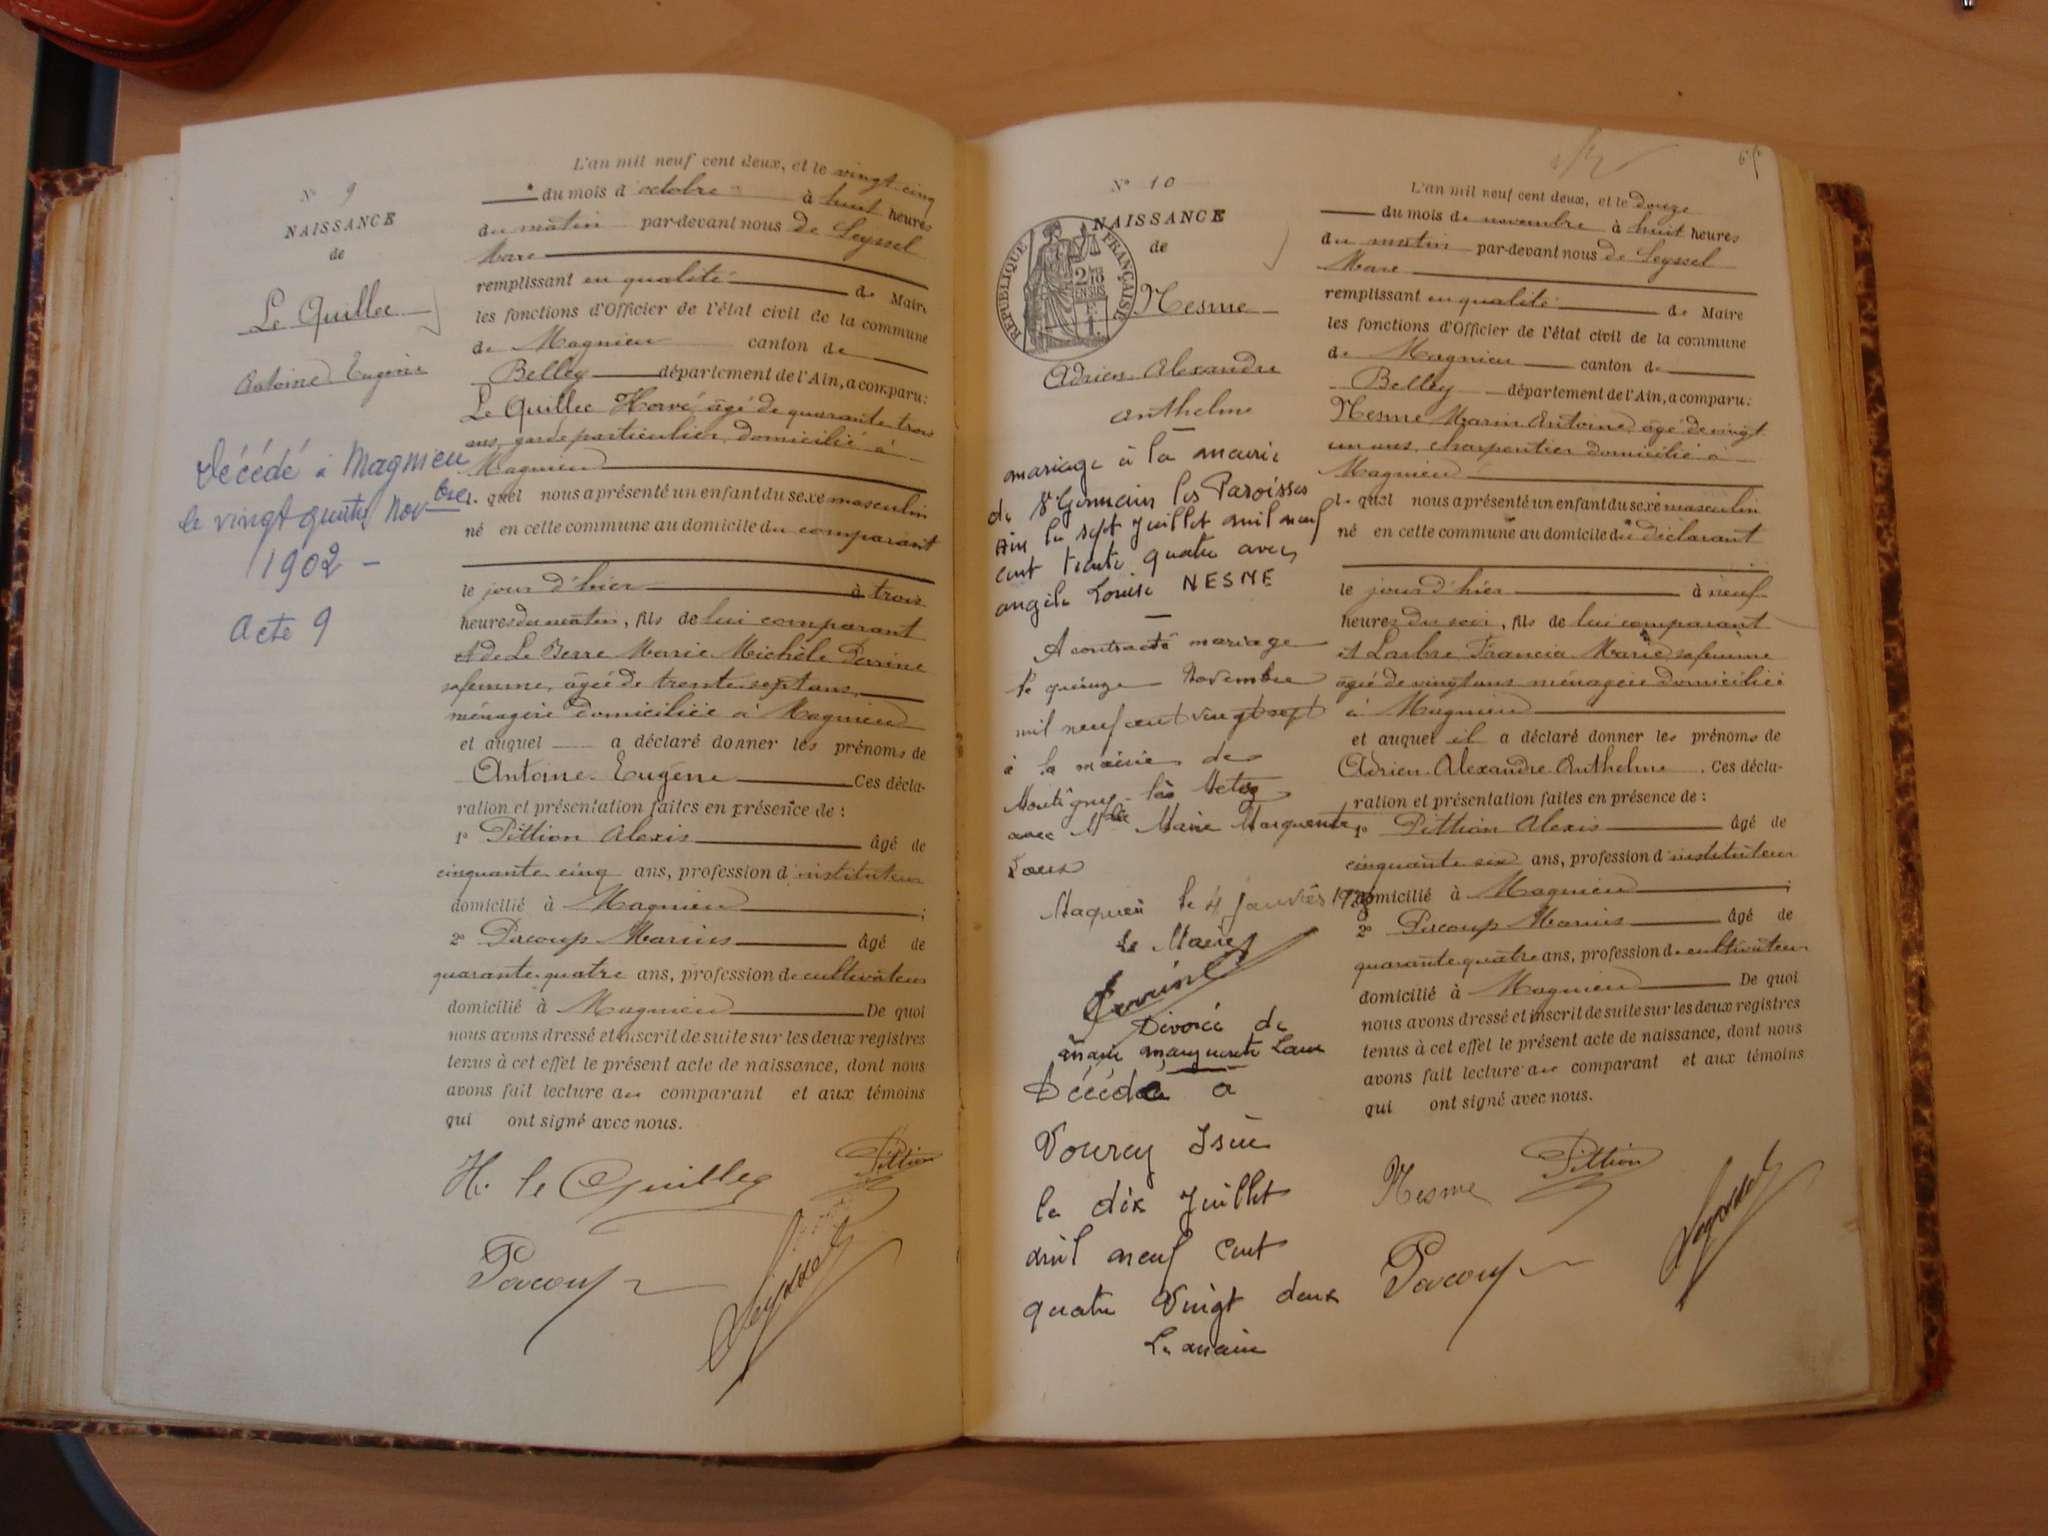 N° 9
NAISSANCE
de
Le Quillec
Antoine Eugène
Décédé à Magnieu
le vingt quatre Novbre
1902 -
Acte 9
L'an mil neuf cent deux, et le vingt-cinq
du mois d'octobre à huit heures
du matin par-devant nous de Seyssel
Marc
remplissant en qualité de Maire
les fonctions d'Officier de l'état civil de la commune
de Magnieu canton de
Belley département de l'Ain, a comparu:
Le Quillec Hervé, âgé de quarante trois
ans, garde particulier, domicilié à
Magnieu
lequel nous a présenté un enfant du sexe masculin
né en cette commune au domicile du comparant
le jour d'hier à trois
heures du matin, fils de lui comparant
et de Le Berre Marie Michèle Perrine
sa femme, âgée de trente-sept ans,
ménagère domiciliée à Magnieu
et auquel a déclaré donner les prénoms de
Antoine-Eugène Ces décla-
ration et présentation faites en présence de :
1° Pittion Alexis âgé de
cinquante cinq ans, profession d'instituteur
domicilié à Magnieu ;
2° Parcoup Marius âgé de
quarante-quatre ans, profession de cultivateur
domicilié à Magnieu De quoi
nous avons dressé et inscrit de suite sur les deux registres
tenus à cet effet le présent acte de naissance, dont nous
avons fait lecture au comparant et aux témoins
qui ont signé avec nous.
H. le Quillec Pittion
Parcoup Seyssel
N° 10
NAISSANCE
de
RÉPUBLIQUE FRANÇAISE
2/10 EN SUS
Nesme
Adrien Alexandre
Anthelme
mariage à la mairie
de St Germain les Paroisses
Ain le sept Juillet mil neuf
cent trente quatre avec
angèle Louise NESME
A contracté mariage
le quinze Novembre
mil neuf cent vingt sept
à la mairie de
Montigny-lès Metz
avec Mlle Marie Marguerite
Laux
Magnieu le 4 Janvier 1928
Le Maire
Divorcé de
marie marguerite Laux
Décédé à
Vourey Isère
le dix Juillet
mil neuf cent
quatre vingt deux
Le maire
65
L'an mil neuf cent deux, et le douze
du mois de novembre à huit heures
du matin par-devant nous de Seyssel
Marc
remplissant en qualité de Maire
les fonctions d'Officier de l'état civil de la commune
de Magnieu canton de
Belley département de l'Ain, a comparu:
Nesme Marin Antoine, âgé de vingt
un ans, charpentier domicilié à
Magnieu
lequel nous a présenté un enfant du sexe masculin
né en cette commune au domicile du déclarant
le jour d'hier à neuf
heures du soir, fils de lui comparant
et Larbre Francia Marie sa femme
âgée de vingt ans ménagère domiciliée
à Magnieu
et auquel il a déclaré donner les prénoms de
Adrien-Alexandre-Anthelme. Ces décla-
ration et présentation faites en présence de :
1° Pittion Alexis âgé de
cinquante six ans, profession d'instituteur
domicilié à Magnieu ;
2° Parcoup Marius âgé de
quarante quatre ans, profession de cultivateur
domicilié à Magnieu De quoi
nous avons dressé et inscrit de suite sur les deux registres
tenus à cet effet le présent acte de naissance, dont nous
avons fait lecture au comparant et aux témoins
qui ont signé avec nous.
Nesme Pittion
Parcoup Seyssel